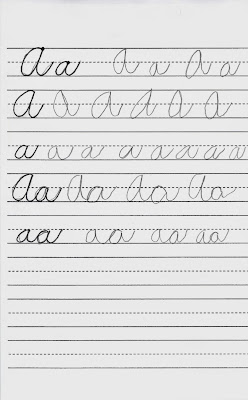 A a A a A a
A A A A A A
a a a a a a a a
Aa Aa Aa Aa
aa aa aa aa